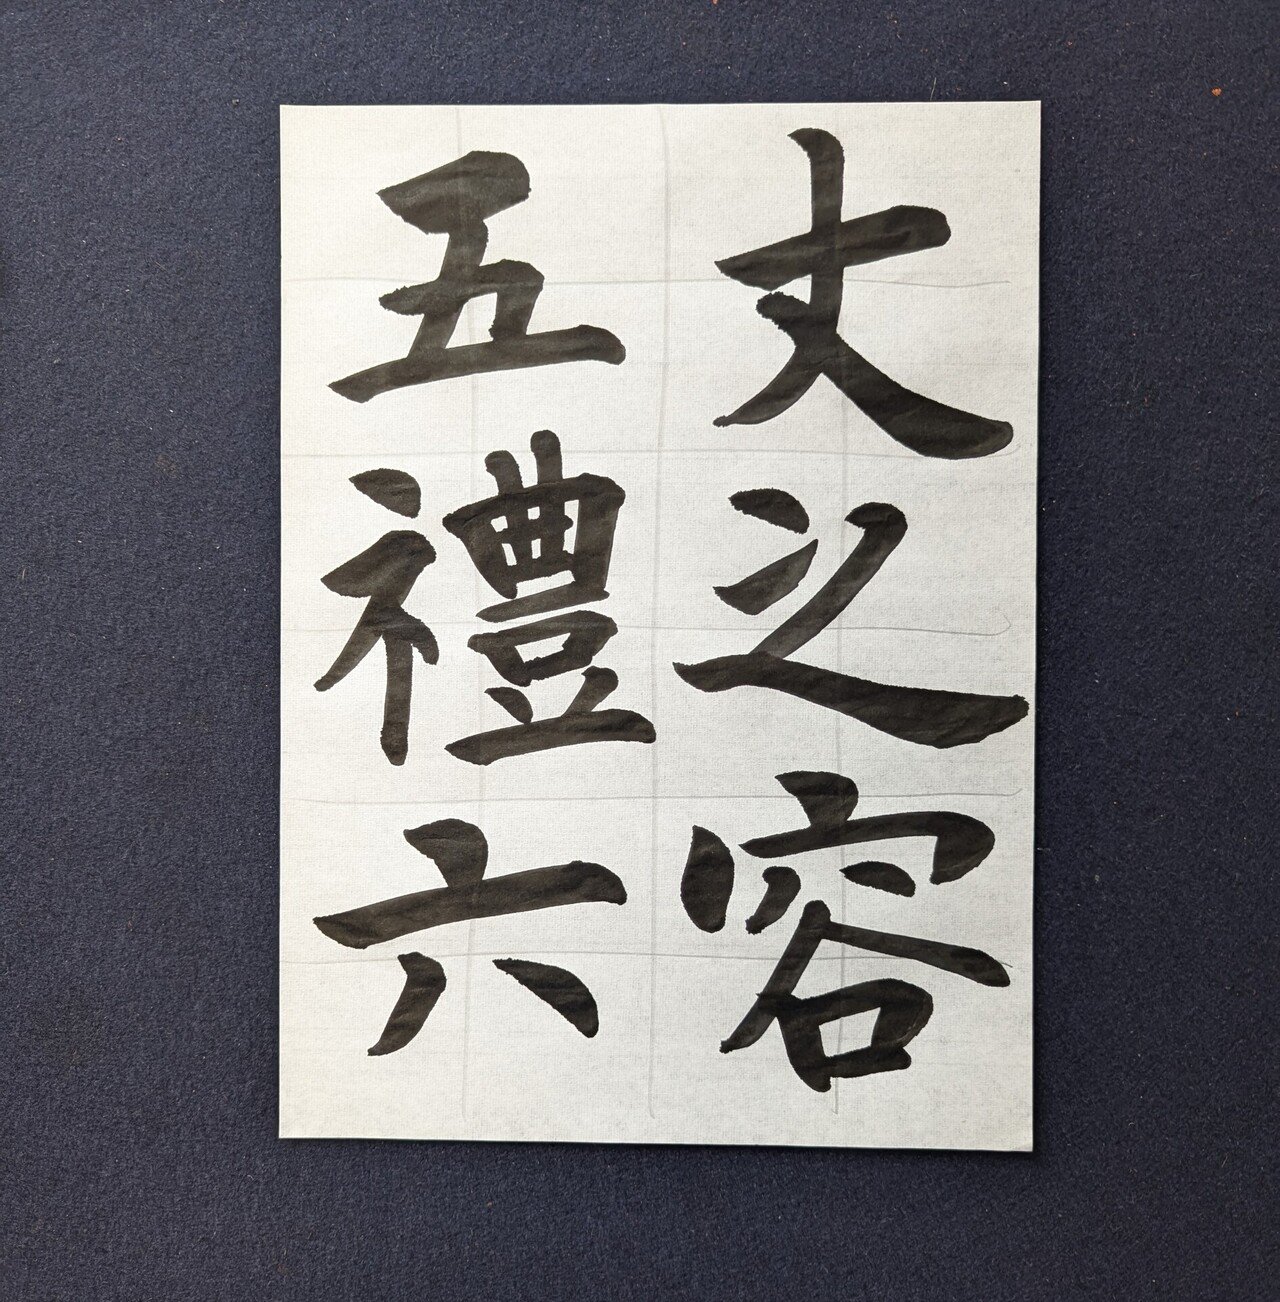 丈之容
五禮六